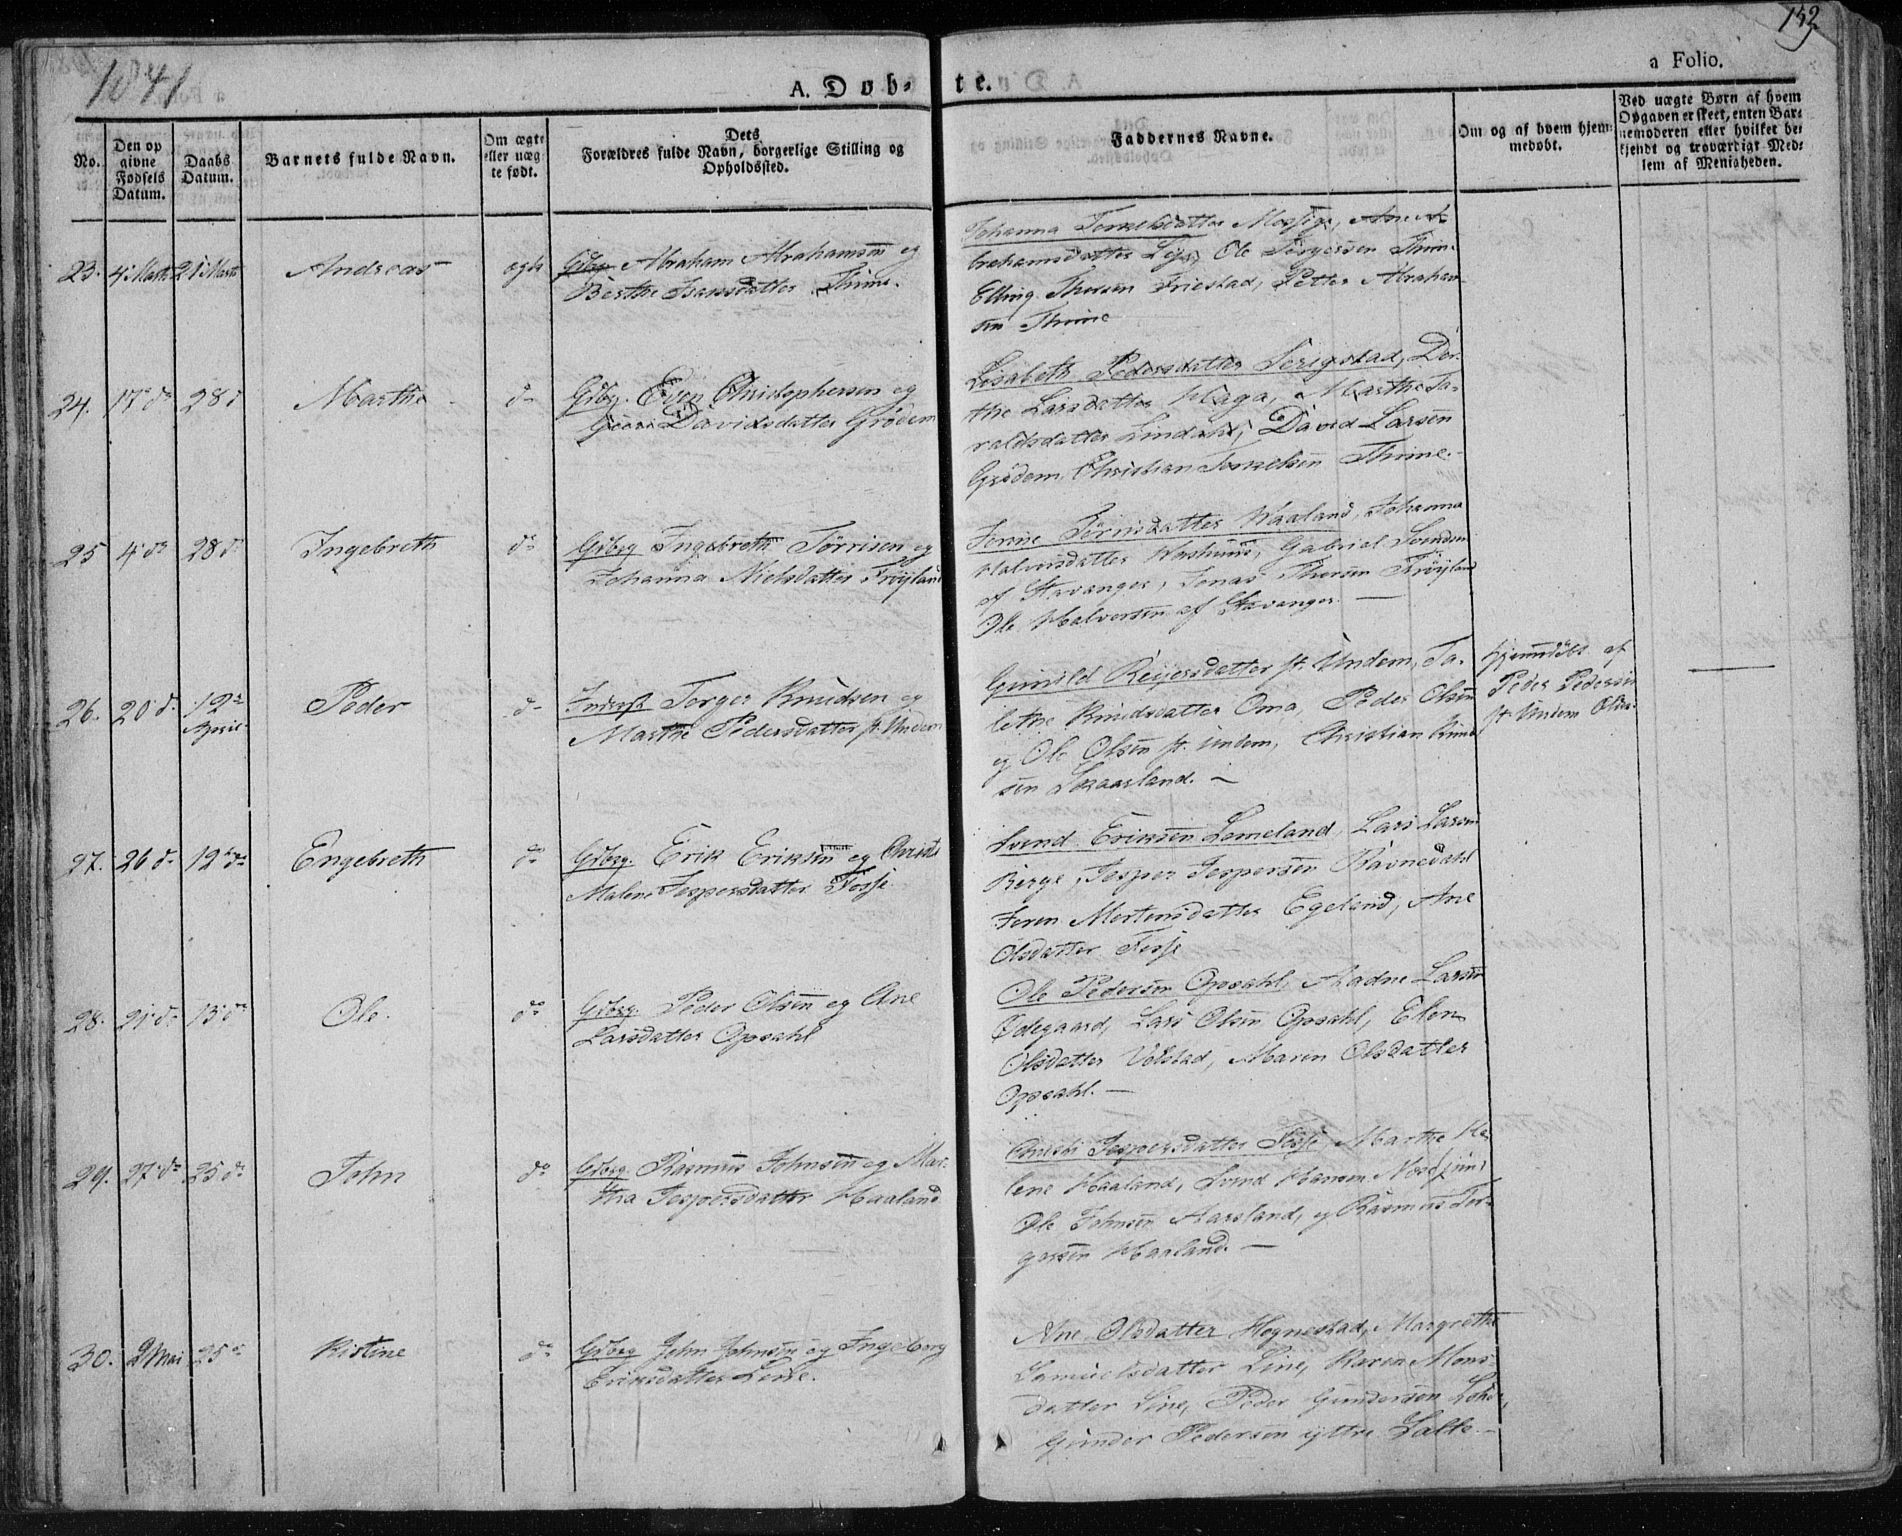 1841
152
A. Døb-
te.
a Folio.
No.
Den op
givne
Fødsels
Datum.
Daabs
Datum.
Barnets fulde Navn.
Om ægte
eller uæg-
te født.
Dets
Forældres fulde Navn, borgerlige Stilling og
Opholdssted.
Faddernes Navne.
Om og af hvem hjem-
medøbt.
Ved uægte Børn af hvem
Opgaven er skeet, enten Bar-
nemoderen eller hvilket be-
kjendt og troværdigt Med-
lem af Menigheden.
23. 4 Marts 21 Marts
Andreas
ægte
Gbrg. Abraham Abrahamsen og
Berthe Isaksdatter Thime.
Johanna Tormodsdatter Mossige, Ane A-
brahamsdatter Lye, Ole Torgersen Thime
Elling Thorsen Friestad, Petter Abraham-
sen Thime
24. 17 do 28 d
Marthe
do
Gbrg. Even Christophersen og
Davidsdatter Grødem
Lisabeth Pedersdatter Serigstad, Dor-
the Larsdatter Haga, Marthe Ta-
raldsdatter Lindahl, David Larsen
Grødem, Christian Tormodsen Thime.
25 4 do 28 d
Ingebreth
do
Gbrg Ingebreth Tørrisen og
Johanna Nielsdatter Frøyland
Serine Tørrisdatter Waaland, Johanna
Halvorsdatter Gabriel
af Stavanger, Jonas Thorsen Frøyland
Ole Halvorsen af Stavanger. —
26. 20 d. 12te
April
Peder
d-
Inderst Torger Knudsen og
Marthe Pedersdatter st. Undem
Gunild Reijersdatter st. Undem, Ta-
lethe Knudsdatter Oma, Peder Olsen
og Ole Olsen st. Undem, Christian Knud-
sen Skaarland. —
hjemmedøbt af
Peder Pedersen
st. Undem
27. 26 d. 12 do
Engebreth
do
Gbrg. Erik Eriksen og Christi
Malene Jespersdatter Fosse
Svend Eriksen Lomeland, Lars Larsen
Berge, Jesper Jespersen Ravnedahl
Seren Mortensdatter Egeland, Ane
Olsdatter Fosse
28. 21 d. 13 do
Ole.
do
Gbrg. Peder Olsen og Ane
Larsdatter Opsahl
Ole Pedersen Opsahl, Aadne Larsen
Ødegaard, Lars Olsen Opsahl, Elen
Olsdatter Volstad, Maren Olsdatter
Opsahl. —
29. 27 do 25 d.
John
do
Gbrg. Rasmus Johnsen og Mar-
tha Jespersdatter Haaland
Christi Jespersdatter Fosse, Marthe He-
lene Haaland, Svend Hansen
Ole Johnsen Aarsland, og Rasmus Tor-
gersen Haaland. —
30. 2 Mai 25 d
Kistine
do
Gbrg John Johnsen og Ingeborg
Eriksdatter Line.
Ane Olsdatter Hognestad, Margrethe
Samuelsdatter Line, Karen Mons-
datter Line, Peder Gundersen
Gunder Pedersen yttre Salte —